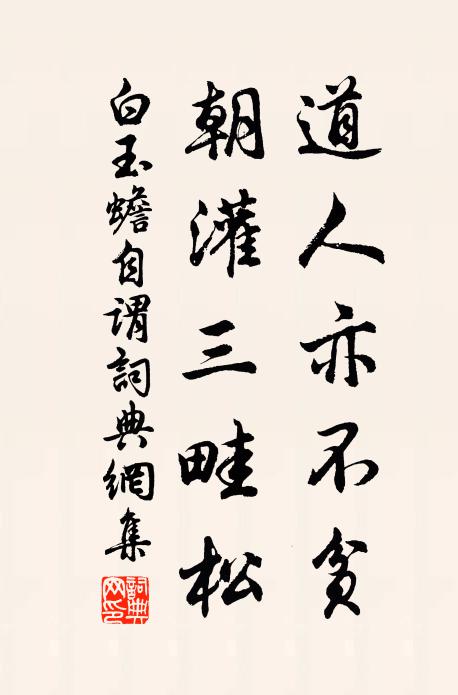 道人亦不貧
朝灌三畦松
白玉蟾自謂詞典網集
詞典網印